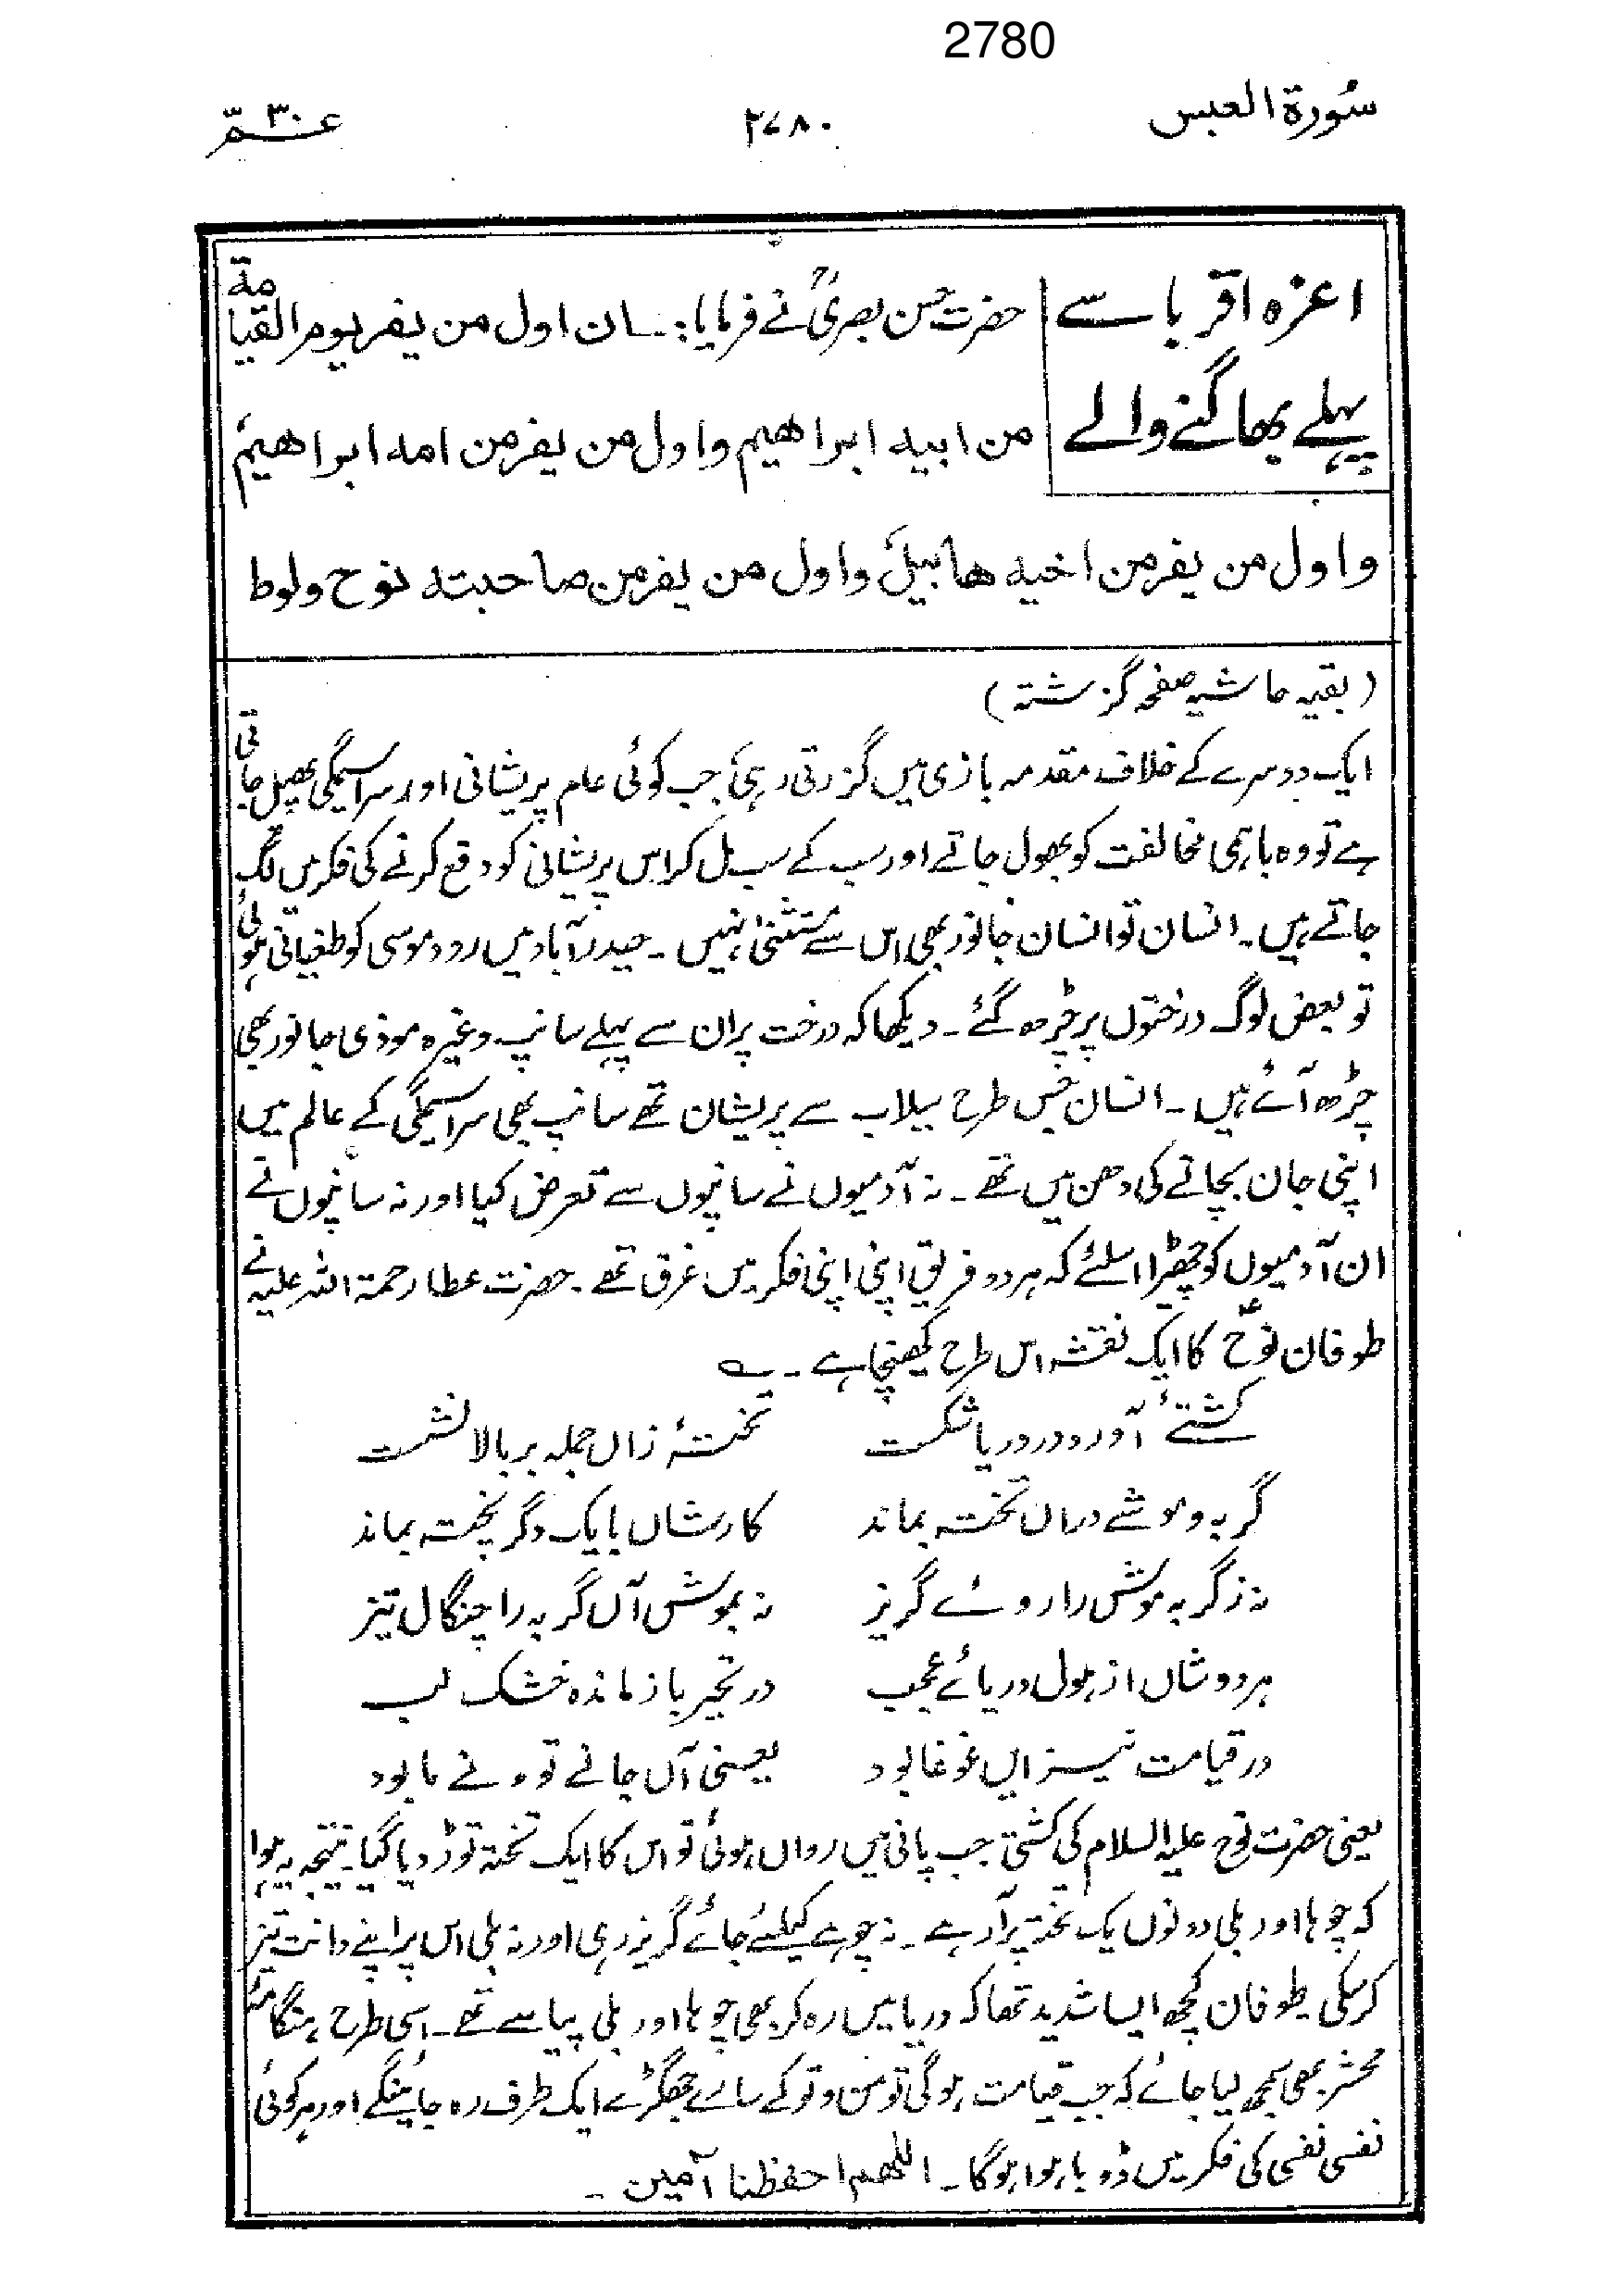 2780
سُورة العبس ۲۷۸۰ عمّ ۳۰
اعزہ اقربا سے
پہلے بھاگنے والے
حضرت حسن بصریؒ نے فرمایا:۔ ان اول من یفر یوم القیامة
من ابیه ابراهیم واول من یفر من امه ابراهیمؑ
واول من یفر من اخیه هابیلؑ واول من یفر من صاحبته نوح ولوط
(بقیہ حاشیہ صفحہ گزشتہ)
ایک دوسرے کے خلاف مقدمہ بازی میں گزرتی رہی، جب کوئی عام پریشانی اور سراسیمگی پھیل جاتی
ہے تو وہ باہمی مخالفت کو بھول جاتے اور سب کے سب مل کر اس پریشانی کو دفع کرنے کی فکر میں لگ
جاتے ہیں۔ انسان تو انسان جانور بھی اس سے مستثنیٰ نہیں۔ حیدرآباد میں رود موسی کو طغیانی ہوئی
تو بعض لوگ درختوں پر چڑھ گئے۔ دیکھا کہ درخت پر ان سے پہلے سانپ وغیرہ موذی جانور بھی
چڑھ آئے ہیں۔ انسان جس طرح سیلاب سے پریشان تھے سانپ بھی سراسیمگی کے عالم میں
اپنی جان بچانے کی دھن میں تھے۔ نہ آدمیوں نے سانپوں سے تعرض کیا اور نہ سانپوں نے
ان آدمیوں کو چھیڑا اسلئے کہ ہر دو فریق اپنی اپنی فکر میں غرق تھے۔ حضرت عطار رحمۃ اللہ علیہ نے
طوفان نوحؑ کا ایک نقشہ اس طرح کھینچا ہے۔ ؎
کشتۓ آورد و در دریا شکست تختۂ زاں جملہ بر بالا نشست
گربہ و موشے دراں تختہ بماند کارشاں بایک دگر پختہ بماند
نہ ز گربہ موش را روئے گریز نہ بموش آں گربہ را چنگال تیز
ہر دو شاں از ہول دریائے عجب در تحیر باز ماندہ خشک لب
در قیامت نیز ایں غوغا بود یعنی آں جا نے تو و نے ما بود
یعنی حضرت نوح علیہ السلام کی کشتی جب پانی میں رواں ہوئی تو اس کا ایک تختہ توڑ دیا گیا۔ نتیجہ یہ ہوا
کہ چوہا اور بلی دونوں یک تختہ پر آرہے۔ نہ چوہے کیلئے جائے گریز رہی اور نہ بلی اس پر اپنے دانت تیز
کر سکی طوفان کچھ ایسا شدید تھا کہ دریا میں رہ کر بھی چوہا اور بلی پیاسے تھے۔ اسی طرح ہنگامۂ
محشر بھی سمجھ لیا جائے کہ جب قیامت ہوگی تو من و تو کے سارے جھگڑے ایک طرف رہ جائینگے اور ہر کوئی
نفسی نفسی کی فکر میں ڈوبا ہوا ہوگا۔ اللھم احفظنا آمین۔